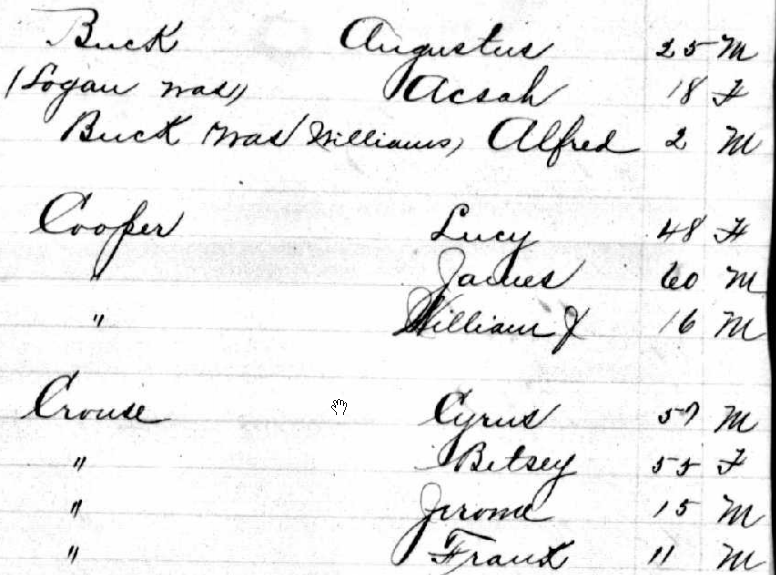 Buck Augustus 25 M
(Logan was) Acsah 18 F
Buck (was Williams) Alfred 2 M
Cooper Lucy 48 F
" James 60 M
" William J 16 M
Crouse Cyrus 57 M
" Betsey 55 F
" Jerome 15 M
" Frank 11 M